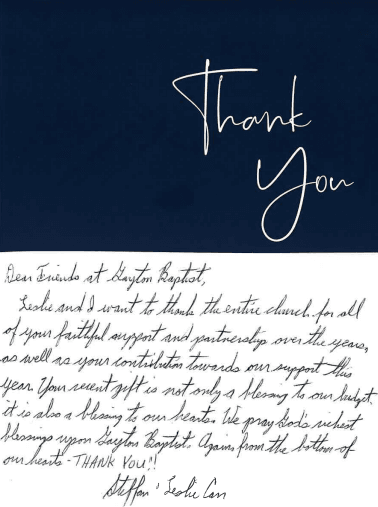 Thank
You
Dear Friends at Gayton Baptist,
Leslie and I want to thank the entire church for all
of your faithful support and partnership over the years,
as well as your contribution towards our support this
year. Your recent gift is not only a blessing to our budget,
it is also a blessing to our hearts. We pray God's richest
blessings upon Gayton Baptist. Again, from the bottom of
our hearts - THANK YOU!!
Steffan & Leslie Carr